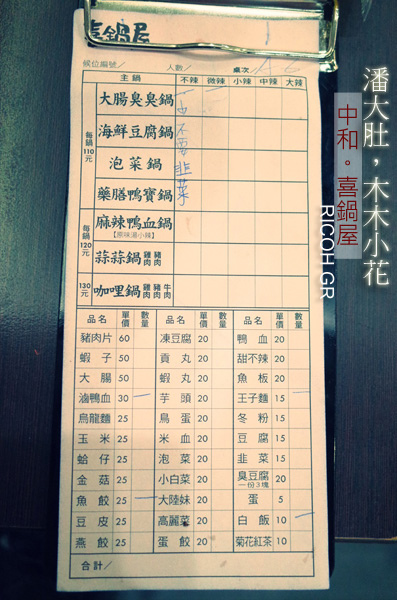 喜鍋屋
候位編號/ 人數/ 桌次/
主鍋 不辣 微辣 小辣 中辣 大辣
每鍋110元
大腸臭臭鍋 一
海鮮豆腐鍋
泡菜鍋
藥膳鴨寶鍋
不要韭菜
每鍋120元
麻辣鴨血鍋
【原味湯小辣】
蒜蒜鍋 雞肉 豬肉
130元 咖哩鍋 雞肉 豬肉 牛肉
品名 單價 數量 品名 單價 數量 品名 單價 數量
豬肉片 60 凍豆腐 20 鴨血 20
蝦子 50 貢丸 20 甜不辣 20
大腸 50 蝦丸 20 魚板 20
滷鴨血 30 一 芋頭 20 王子麵 15 一
烏龍麵 25 鳥蛋 20 冬粉 15
玉米 25 米血 20 豆腐 15
蛤仔 25 泡菜 20 韭菜 15
金菇 25 小白菜 20 臭豆腐 一份3塊 20
魚餃 25 一 大陸妹 20 蛋 5
豆皮 25 高麗菜 20 白飯 10 一
燕餃 25 蛋餃 20 菊花紅茶 10
合計/
潘大肚，木木小花
中和。喜鍋屋
RICOH GR